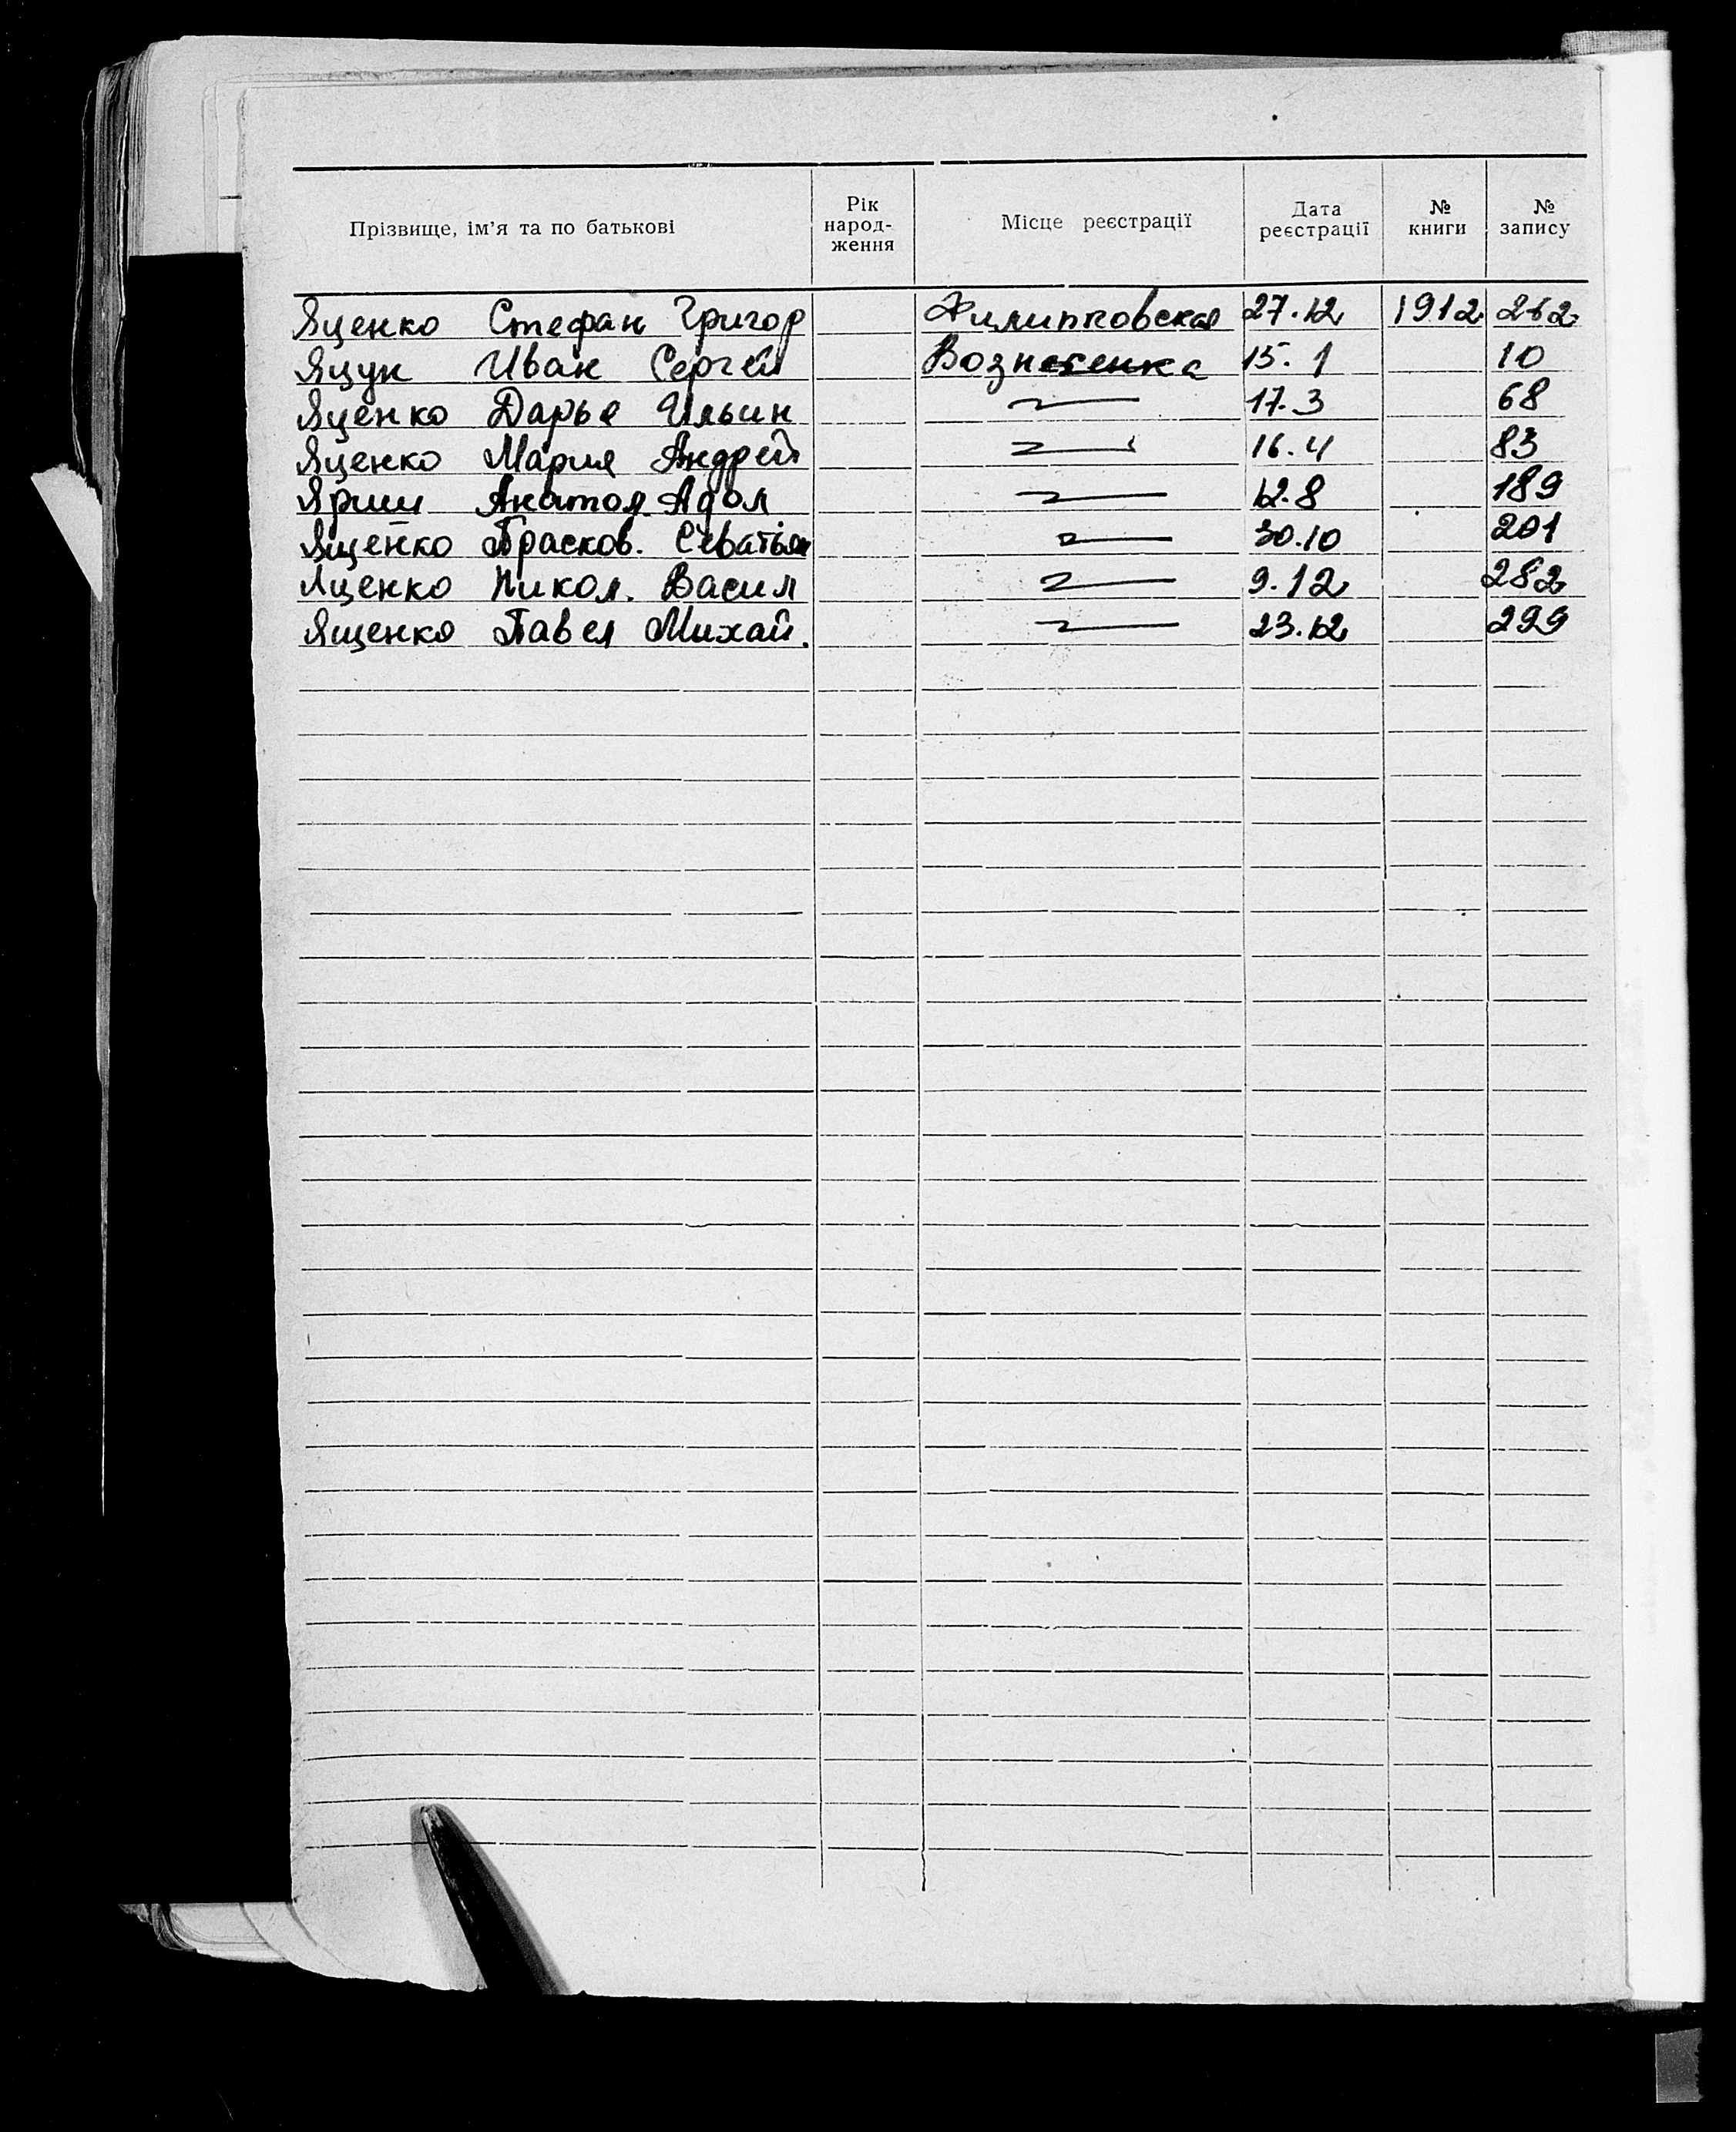 Прізвище, ім'я та по батькові Рік народ-ження Місце реєстрації Дата реєстрації № книги № запису
Яценко Стефан Григор Филипповская 27.12 1912 262
Яцун Иван Сергей Вознесенка 15.1 10
Яценко Дарья Ильин 17.3 68
Яценко Мария Андрей 16.4 83
Яриш Анатол Адол 12.8 189
Ященко Прасков. Севатьян 30.10 201
Яценко Никол. Васил 9.12 282
Ященко Павел Михай. 23.12 299